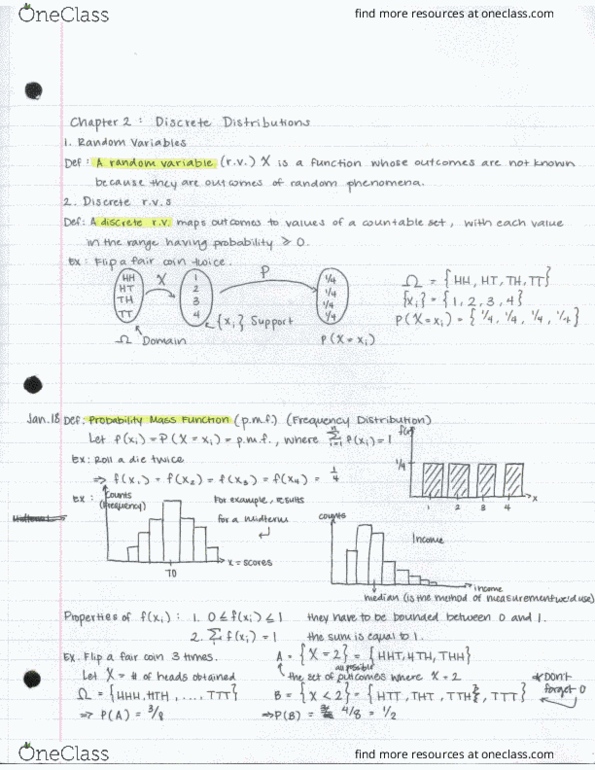 OneClass
find more resources at oneclass.com
Chapter 2 : Discrete Distributions
1. Random Variables
Def : A random variable (r.v.) X is a function whose outcomes are not known
because they are outcomes of random phenomena.
2. Discrete r.v.s
Def: A discrete r.v. maps outcomes to values of a countable set, with each value
in the range having probability ≥ 0.
Ex : Flip a fair coin twice.
HH
HT
TH
TT
X
1
2
3
4
P
1/4
1/4
1/4
1/4
Ω = {HH, HT, TH, TT}
{xi} = {1, 2, 3, 4}
P(X=xi) = {1/4, 1/4, 1/4, 1/4}
{xi} Support
Ω Domain
P(X=xi)
Jan.18 Def: Probability Mass Function (p.m.f.) (Frequency Distribution)
Let f(xi) = P(X = xi) = p.m.f., where Σ f(xi) = 1
Ex: Roll a die twice
⇒ f(x1) = f(x2) = f(x3) = f(x4) = 1/4
1/4
1 2 3 4 x
Ex : Counts (frequency)
For example, results
for a midterm
70
x = scores
counts
Income
income
median (is the method of measurement we'd use)
Properties of f(xi) : 1. 0 ≤ f(xi) ≤ 1 they have to be bounded between 0 and 1.
2. Σ f(xi) = 1 the sum is equal to 1.
Ex. Flip a fair coin 3 times. A = {X = 2} = {HHT, HTH, THH}
as possible
Let X = # of heads obtained the set of outcomes where X = 2
Ω = {HHH, HTH, ...., TTT} B = {X < 2} = {HTT, THT, TTH, TTT}
*Don't forget 0
⇒ P(A) = 3/8 ⇒ P(B) = 4/8 = 1/2
OneClass
find more resources at oneclass.com